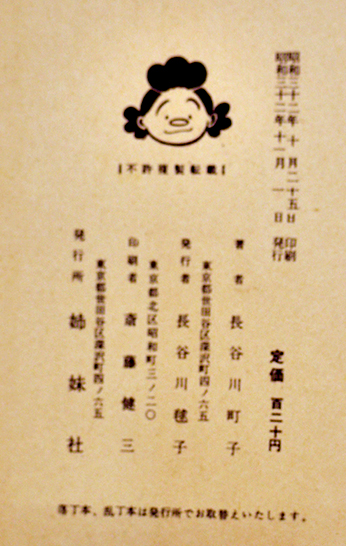 昭和三十二年 十月二十五日 印刷
昭和三十二年十一月 一日 発行
定価 百二十円
不許複製転載
著者 長谷川町子
東京都世田谷区深沢町四ノ六五
発行者 長谷川毬子
東京都北区昭和町三ノ二〇
印刷者 斎藤健三
東京都世田谷区深沢町四ノ六五
発行所 姉妹社
落丁本、乱丁本は発行所でお取替えいたします。